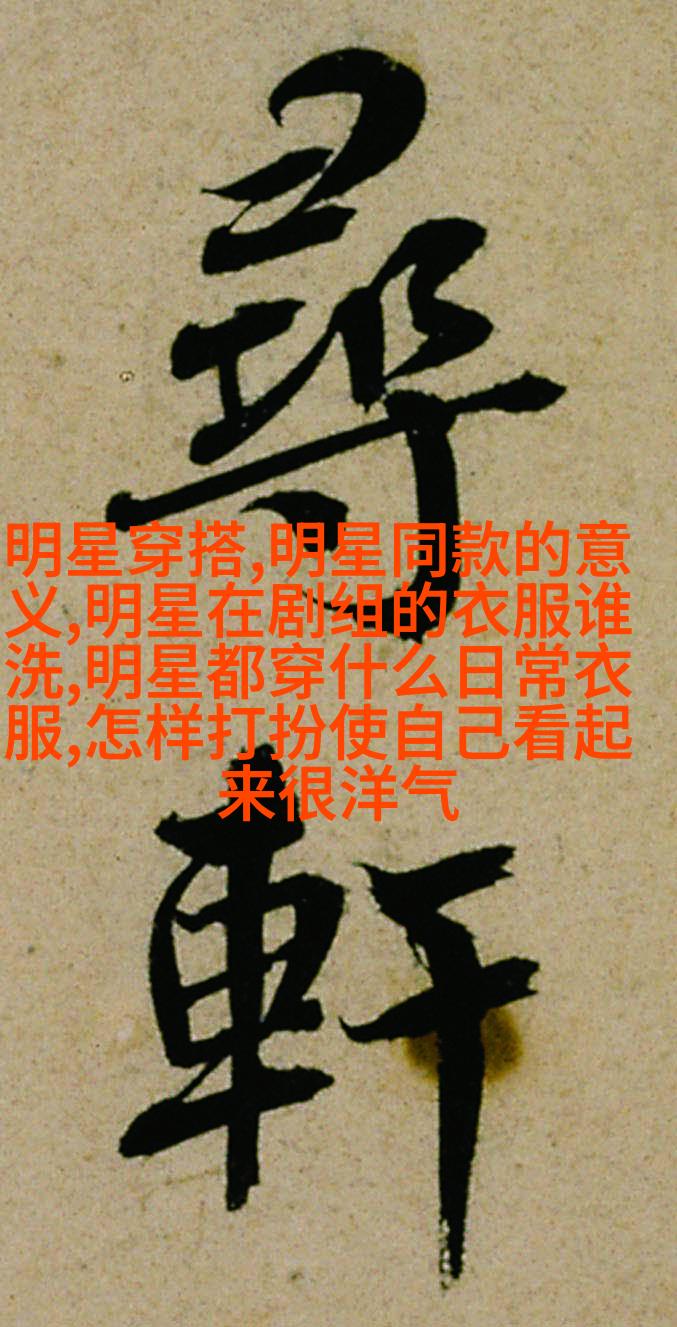 尋
軒
明星穿搭,明星同款的意
义,明星在剧组的衣服谁
洗,明星都穿什么日常衣
服,怎样打扮使自己看起
来很洋气